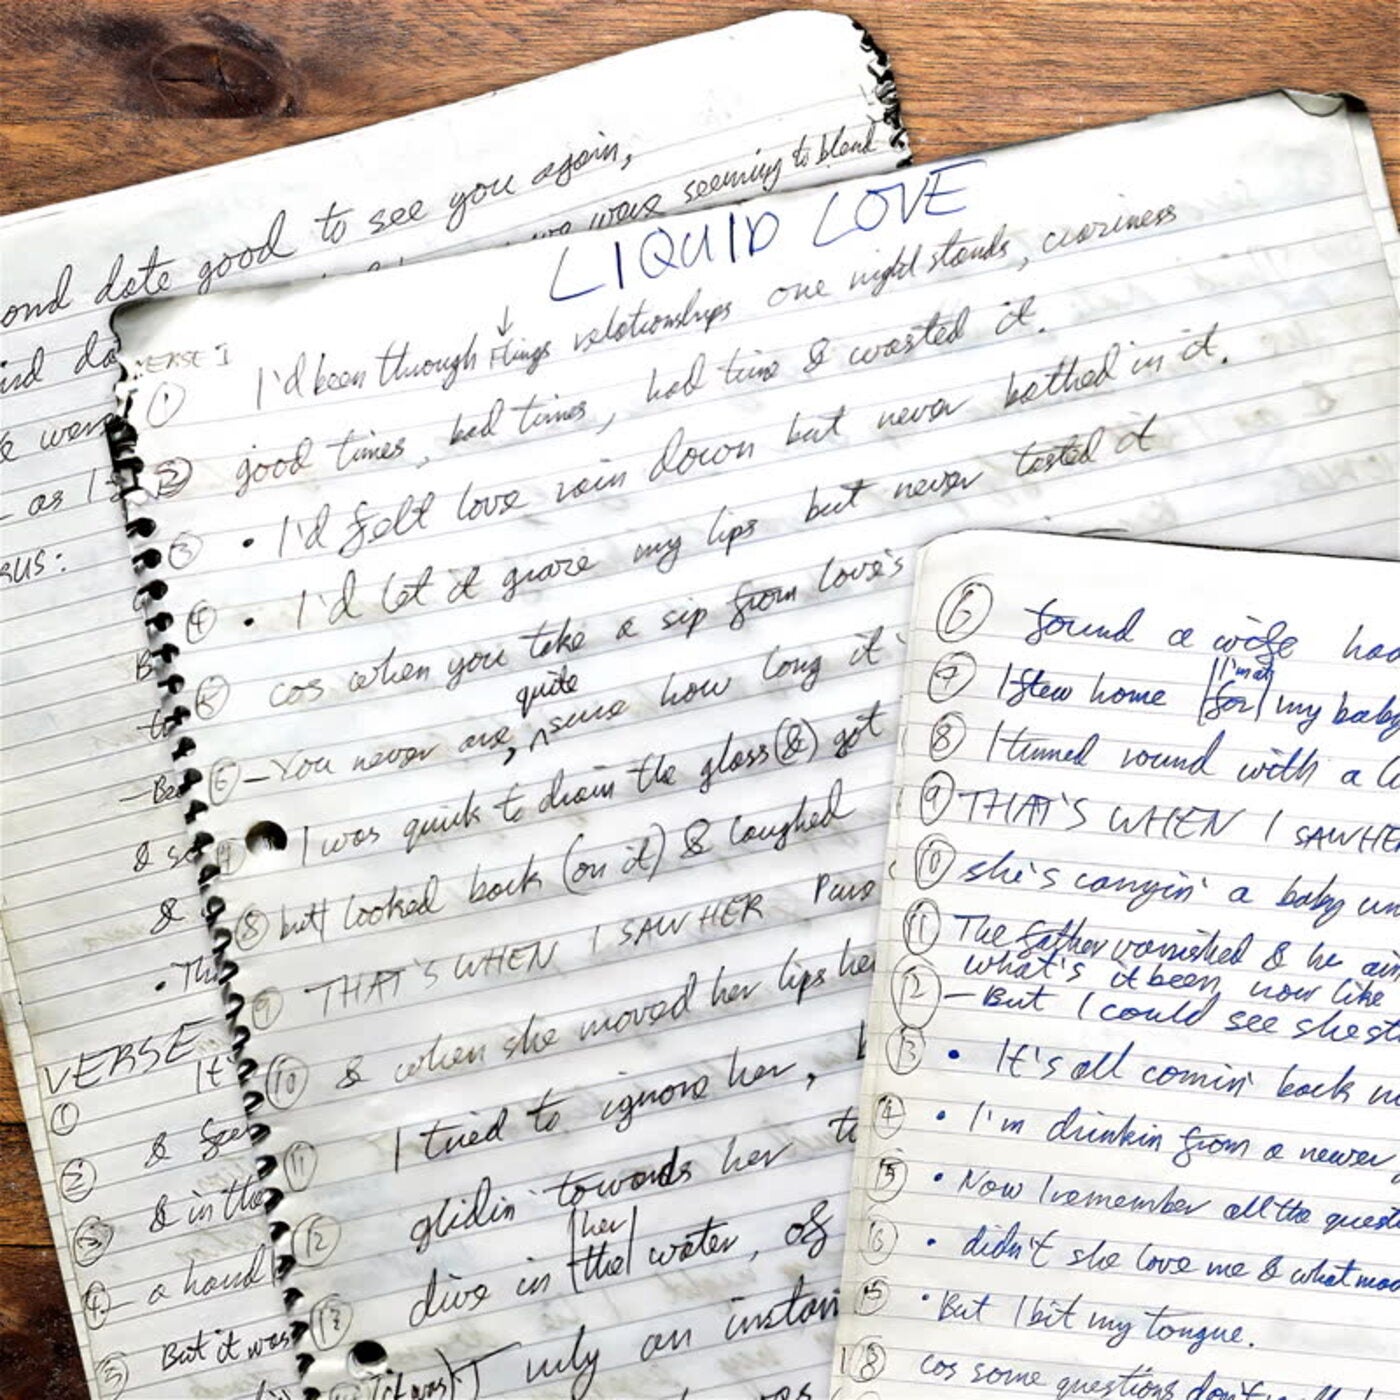 ond date good to see you again,
were seeming to blend
as I
SUS:
B
to
& se
&
VERSE
1
It
& fee
2
& in the
3
4 - a hand
But it was
5
LIQUID LOVE
VERSE 1
1 I'd been through flings relationships one night stands, craziness
2 good times, bad times, had time & wasted it.
3 • I'd felt love rain down but never bathed in it.
4 • I'd let it graze my lips but never tasted it
5 cos when you take a sip from love's
quite
6 - You never are, sure how long it
7 I was quick to drain the glass (&) got
8 but looked back (on it) & laughed
9 THAT'S WHEN I SAW HER
10 & when she moved her lips her
11 I tried to ignore her,
12 glidin towards her to
her
13 dive in the water, of
(it was) Truly an instan
6 found a wife had
I'm at
7 I flew home for my baby
8 I turned round with a
9 THAT'S WHEN I SAW HER
10 she's carryin' a baby un
11 The father vanished & he ain
what's it been, now like
12 - But I could see she st
13 • It's all comin' back
14 • I'm drinkin from a newer
15 • Now I remember all the quest
16 • didn't she love me & what
15 • But I bit my tongue.
18 cos some questions don't